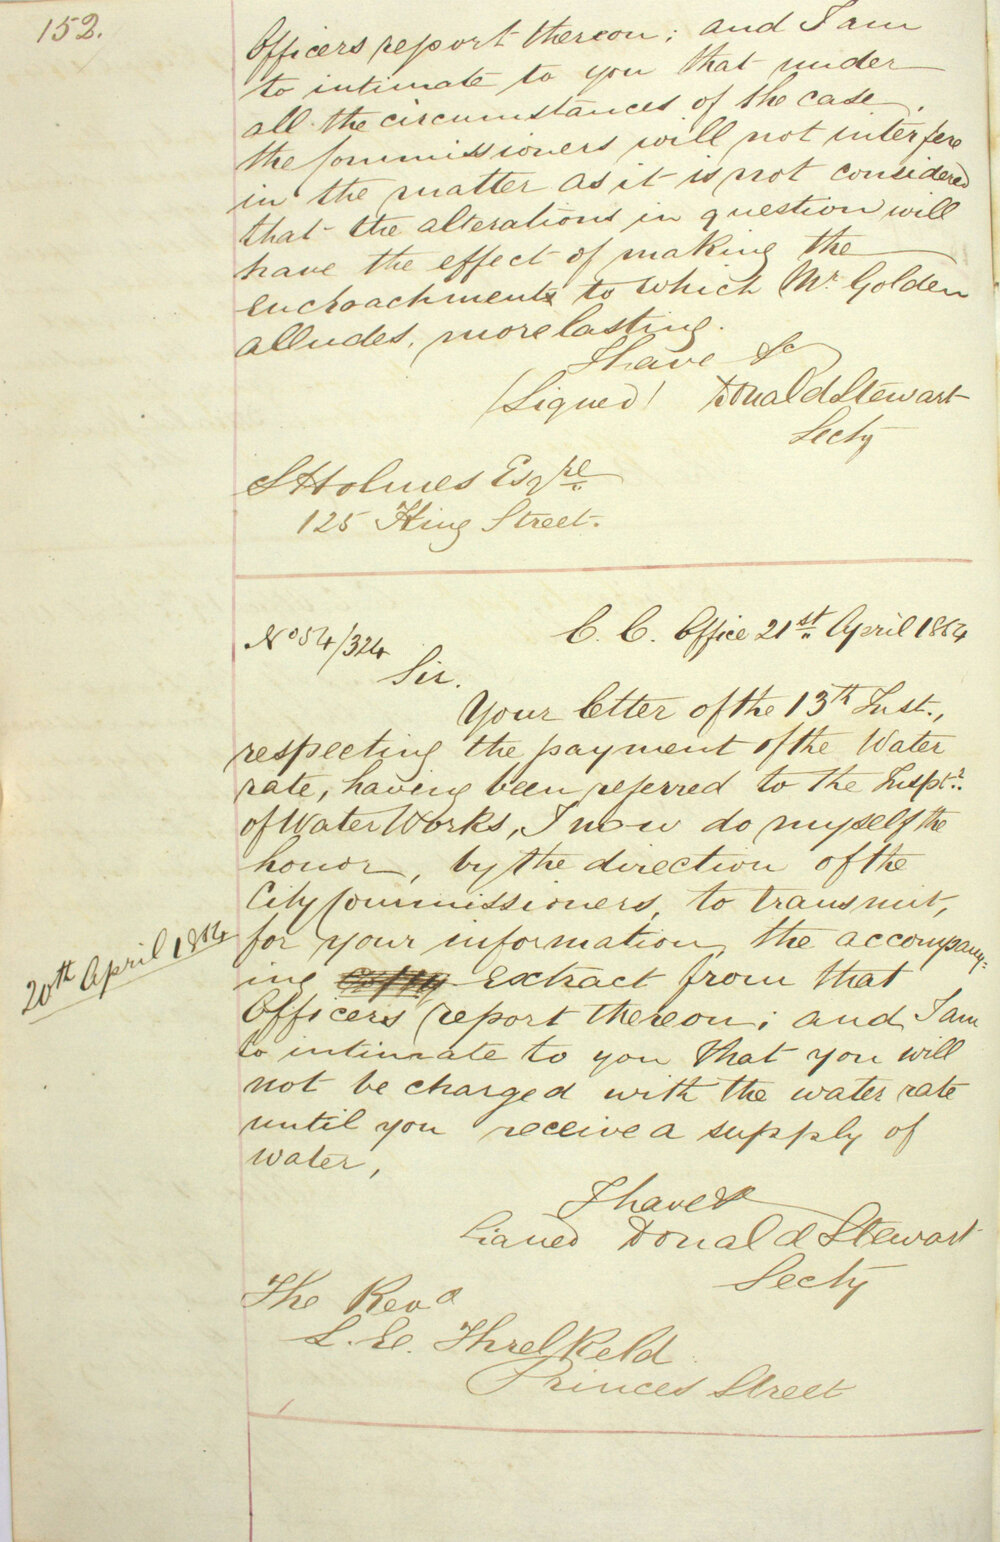 152.
Officers report thereon; and I am
to intimate to you that under
all the circumstances of the case,
the Commissioners will not interfere
in the matter as it is not considered
that the alterations in question will
have the effect of making the
encroachments to which Mr. Golden
alludes, more lasting.
I have &c
(Signed) Donald Stewart
Secty
S Holmes Esqre
125 King Street.
No 54/324
C. C. Office 21st April 1854
Sir.
Your letter of the 13th Inst.,
respecting the payment of the Water
rate, having been referred to the Inspt.r
of Water Works, I now do myself the
honor, by the direction of the
City Commissioners, to transmit,
for your information, the accompany-
20th April 1854
ing extract from that
Officers report thereon; and I am
to intimate to you that you will
not be charged with the water rate
until you receive a supply of
water,
I have &c
Signed Donald Stewart
Secty
The Revd
L. E. Threlkeld
Princes Street